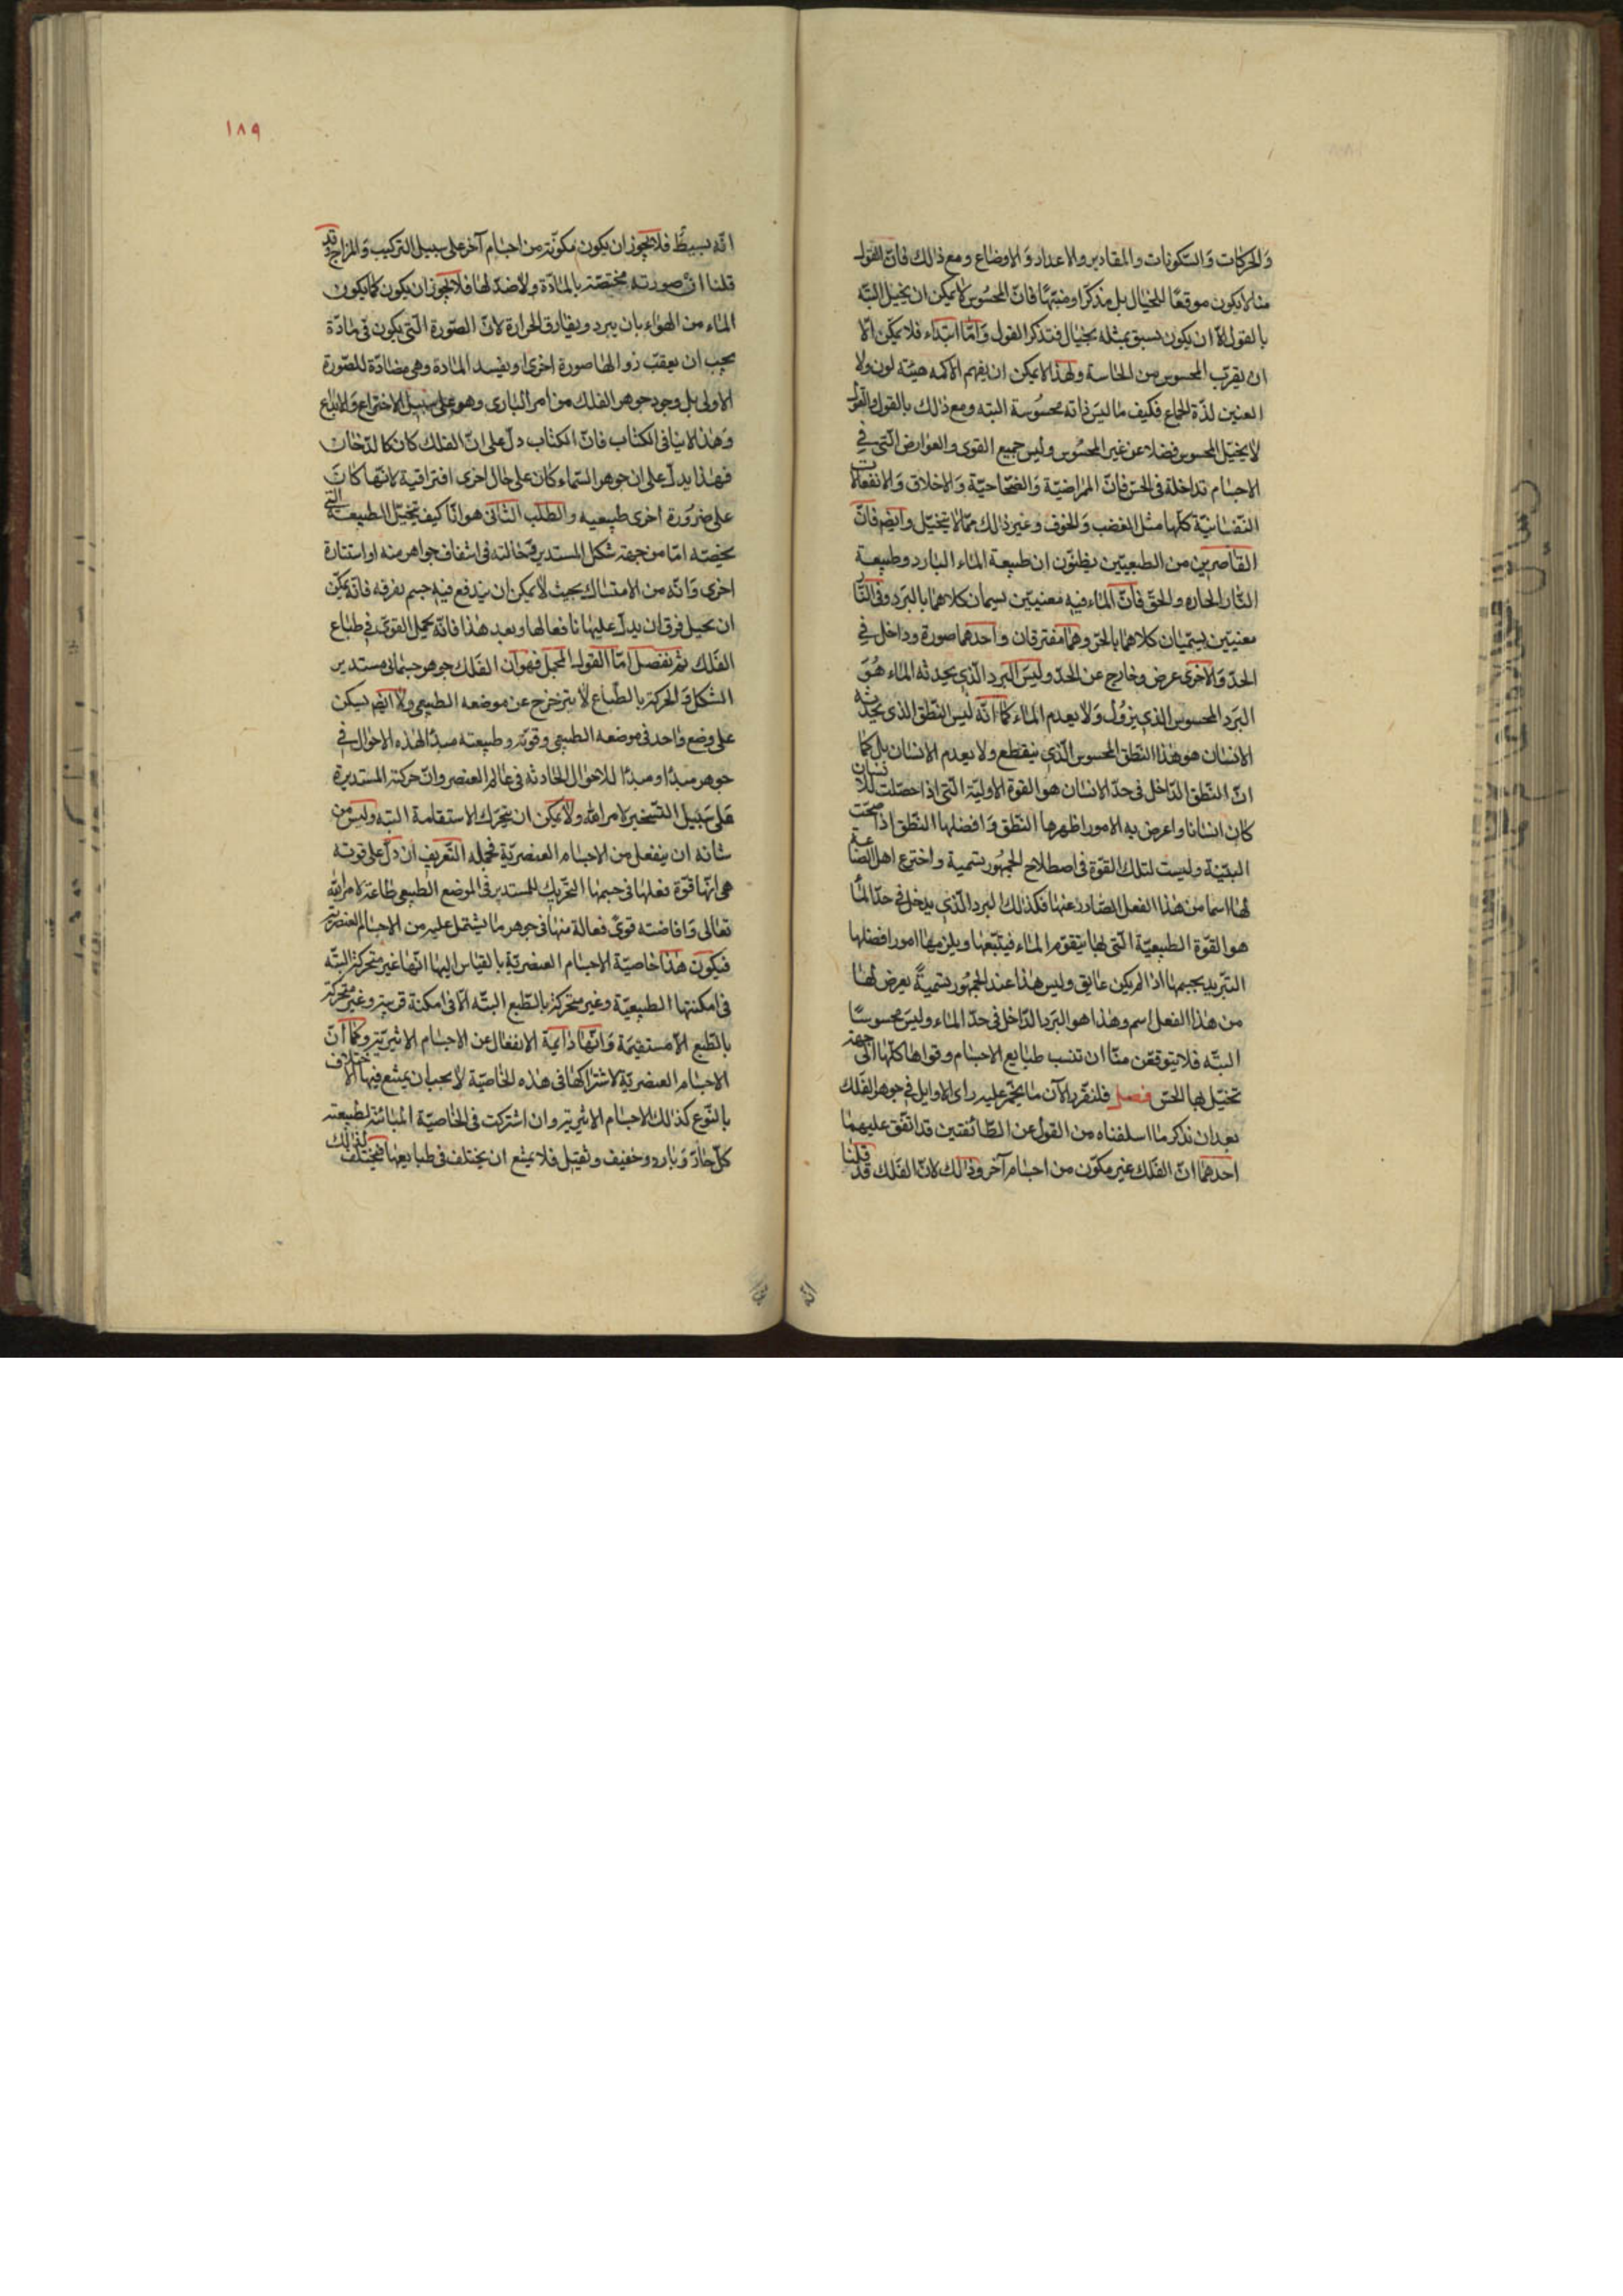 والحركات والسكونات والمقادير والاعداد والاوضاع ومع ذالك فانّ القول
منا لا يكون موقعًا للخيال بل مذكرا ومنبّهًا فانّ المحسُوس لا يمكن ان يخيل البتّه
بالقول الّا ان يكون يسبق بمثله بخيال فتذكر القول وَامّا ابتداء فلا يمكن الّا
ان يقرّب المحسوس من الحاسة ولهذا لا يمكن ان يفهم الاكمه هيئة لون ولا
العنين لذّة الجماع فكيف ما ليسَ ذاته محسُوسة البته ومع ذالك بالقول والقول
لا يخيّل المحسوس فضلا عن غير المحسُوس وليس جميع القوى والعوارض الّتي في
الاجسام تداخلة في الحسّ فانّ الممراضيّة وَالصّحاحيّة وَالاخلاق وَالانفعالات
النّفسَانيّة كلّها مثل الغضب وَالخوف وغير ذالك ممّا لا يتخيّل وايضم فانّ
القاصرين من الطبيعيّين يظنّون ان طبيعة الماء البارد وطبيعة
النّار الحاره والحقّ فانّ الماء فيه معنيين يسميان كلاهما بالبَرد وفى النّار
معنيين يسمّيان كلاهما بالحرّ وهما مفترقان واحدهما صورة وداخل في
الحدّ وَالاخرى عرض وخارج عن الحدّ وليسَ البَرد الّذي يحدثه الماء هُوَ
البَرد المحسوس الذي يزوُل وَلا يعدم الماء كما انّه ليس النطق الذي يحدثه
الانسان هو هذا النّطق المحسوس الّذي ينقطع ولا يعدم الانسان بل كما
انّ النّطق الدّاخل في حدّ الانسان هو القوة الاوليّة الّتي اذا حصّلت للانسان
كان انسانا واعرض به الامور اظهرها النّطق وَافضلها النّطق اذا صحّت
البيّنة وليست لتلك القوّة في اصطلاح الجمهُور بتسمية واخترع اهل الصّناعة
لها اسما من هذا الفعل الصّادر عنها فكذلك البرد الّذي يدخل في حدّ الماء
هو القوّة الطبيعيّة الّتي لها يتقوّم الماء فيتبّعها ويلزمها امور افضلها
التّبريد بجسمها اذا لم يكن عايق وليس هذا عند الجمهُور بتسميةً يعرض لها
من هذا الفعل اسم وهذا هو البَرد الدّاخل في حدّ الماء وليسَ محسوسًا
البتّه فلا يتوقّعن منّا ان تنسب طبايع الاجسام وقواها كلّها الى جهة
تخيّل لها الحسّ فصل فلنقرّر الآن ما يختمر عليه راى الاوايل في جوهر الفلك
بعد ان نذكر ما اسلفناه من القول عن الطّائفتين قد اتفق عليهما
احدهما انّ الفلك غير مكوّن من اجسام آخر وذالك لانّ الفلك قد قلنا
انّه
١٨٩
انّه بسيطٌ فلا يجوز ان يكون مكوّنة من اجسام آخر على سبيل التركيب وَالمزاج وقد
قلنا انّ صورته مختصّة بالمادّة ولا ضدّ لها فلا يجوز ان يكون كما يكون
الماء من الهواء بان يبرد ويفارق الحرارة لانّ الصّورة الّتي يكون في مادّة
يجب ان يعقبّ زوالها صورة اخرى ويفسد المادة وهى مضادّة للصّورة
الاولى بل وجود جوهر الفلك من امر البارى وهو على سَبيل الاختراع وَالابداع
وَهذا لا ينافى الكتاب فانّ الكتاب دلّ على انّ الفلك كان كالدّخان
فهذا يدلّ على ان جوهر السّماء كان على حال اخرى افتراقية لانّها كانَ
على ضرورة اخرى طبيعيه والطّلب الثّانى هو انّا كيف يتخيّل الطبيعة التي
يخصّه امّا من جهة شكل المستدير فحالته في اشفاف جواهر منه او استنارة
اخرى وَانّه من الامتساك بحيث لا يمكن ان يندفع فيه جسم يفرقه فانّه يمكن
ان يحيل فرق ان يدلّ عليها نا فعالها وبعد هذا فانّه يحمل القوىّ في طباع
الفلك ثم نفصل امّا القول المجمل فهو ان الفلك جوهر جسمانى مستدير
الشكل وَالحركة بالطّباع لا يتزحزح عن موضعه الطبيعى ولا ايضم يسكن
على وضع واحد في موضعه الطبيعى وقوته وطبيعته مبدأ لهذه الاحوال في
جوهر مبدأ ومبدأ للاحوال الحادثه في عالم العنصر وانّ حركته المستديرة
على سَبيل التّسخير لامر الله ولا يمكن ان يتحرك الاستقامة البته وليس من
شانه ان ينفعل من الاجسام العنصريّة فجمله التّعريف ان دلّ على قوته
هى انّها قوّة فعلها في جسمها التّحريك للمستدير في الموضع الطبيعى طاعة لامر الله
تعالى وَافاضته قوىً فعالة منها في جوهر ما يشتمل عليه من الاجسام العنصرية
فيكون هذا خاصيّة الاجسام العنصريّة بالقياس اليها انّها غير متحركة البتّه
في امكنتها الطبيعيّة وغير متحركة بالطّبع البتّه الّا في امكنة قريبة وغير متحركة
بالطّبع الّا مستقيمة وَانّها دايمة الانفعال عن الاجسام الاثيريّة وكما انّ
الاجسام العنصريّة لاشتراكها في هذه الخاصيّة لا يجب ان يمتنع فيها الاختلاف
بالنّوع كذلك الاجسام الاثيريّة وان اشتركت في الخاصيّة المباينة لطبيعته
كلّ حارّ وَبارد وخفيف وثقيل فلا يمتنع ان يختلف في طبايعها فيختلف لذلك